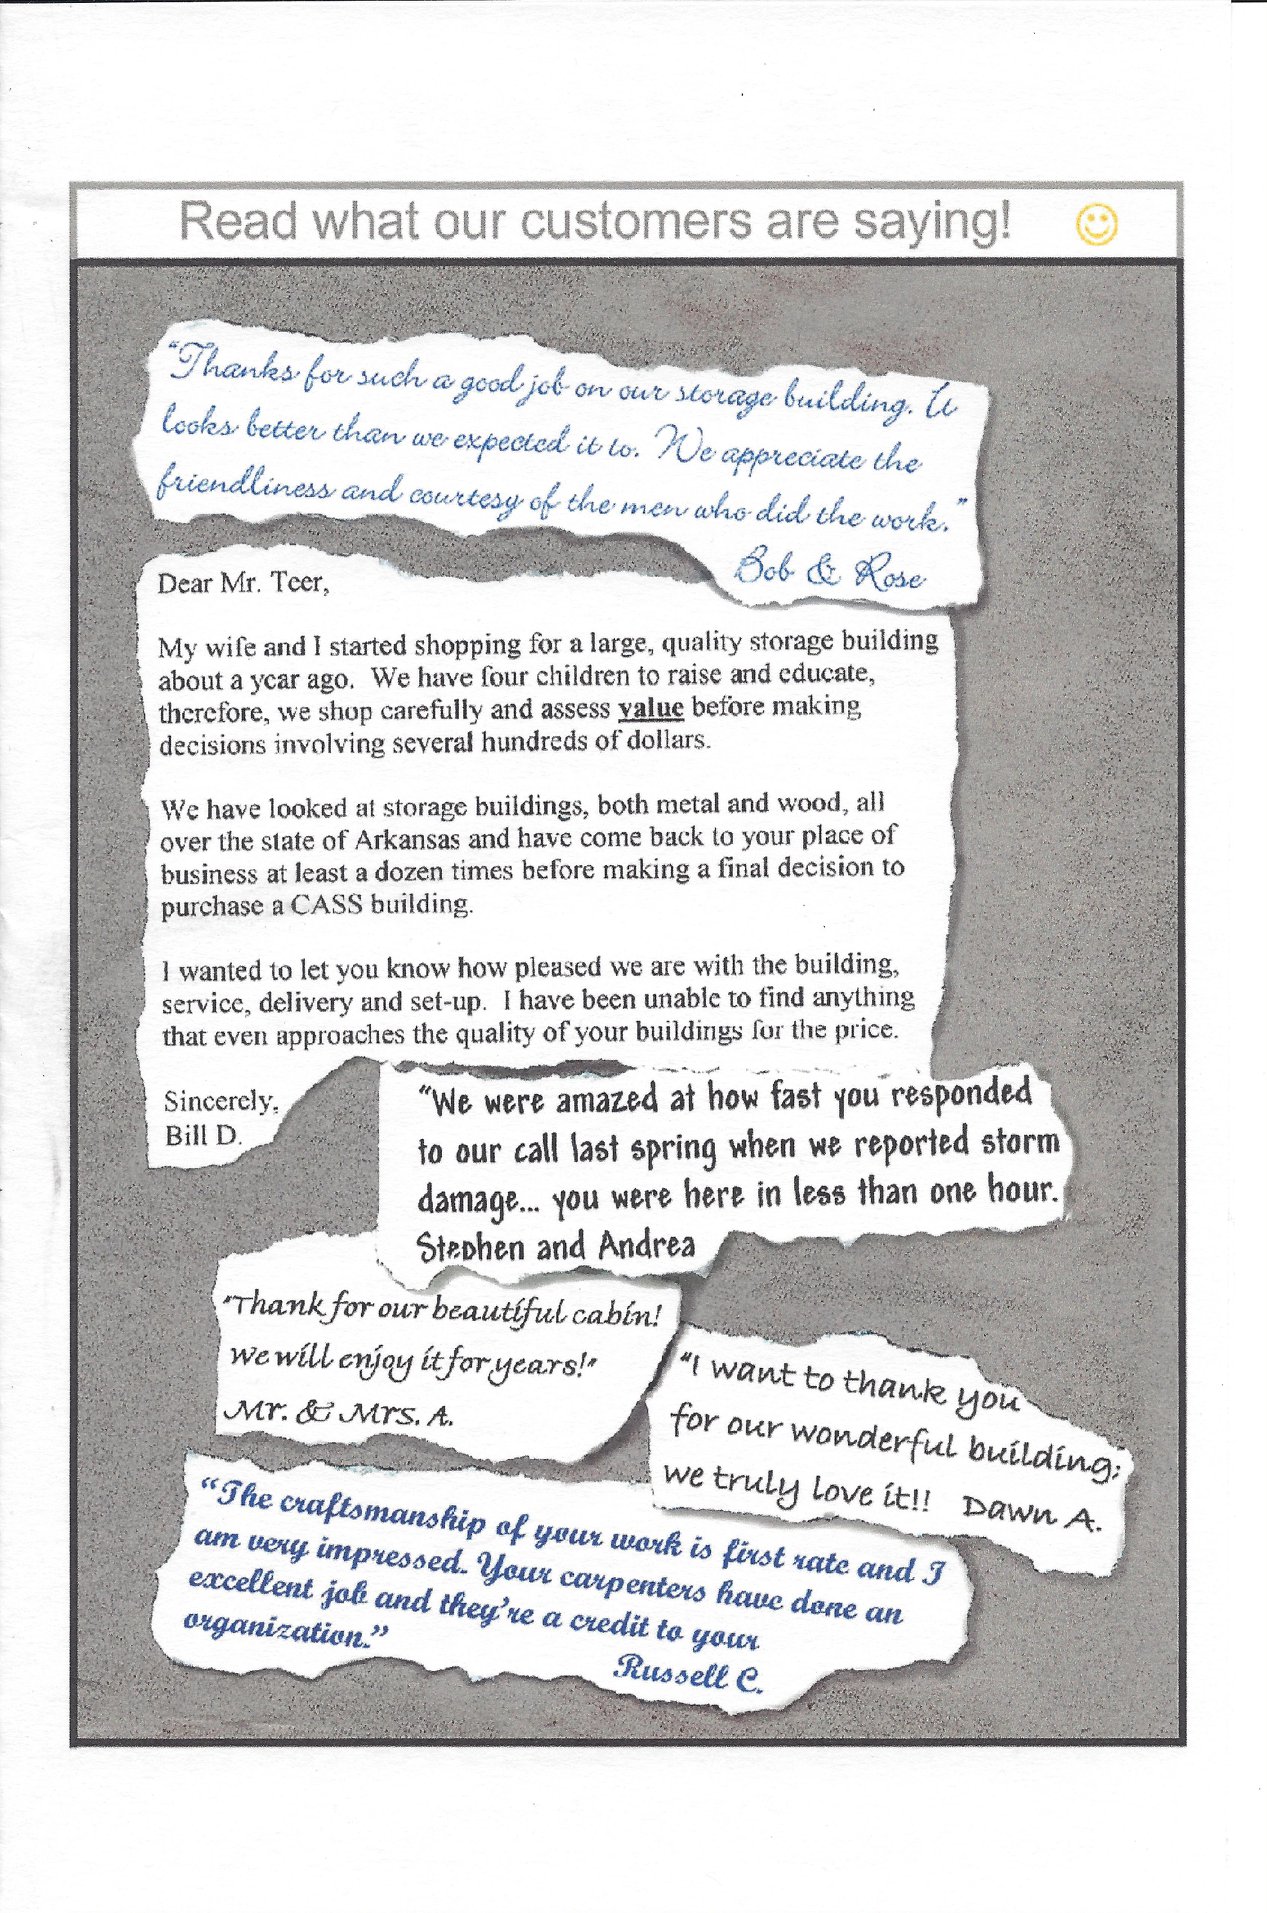 Read what our customers are saying!
"Thanks for such a good job on our storage building. It
looks better than we expected it to. We appreciate the
friendliness and courtesy of the men who did the work."
Bob & Rose
Dear Mr. Teer,
My wife and I started shopping for a large, quality storage building
about a year ago. We have four children to raise and educate,
therefore, we shop carefully and assess value before making
decisions involving several hundreds of dollars.
We have looked at storage buildings, both metal and wood, all
over the state of Arkansas and have come back to your place of
business at least a dozen times before making a final decision to
purchase a CASS building.
I wanted to let you know how pleased we are with the building,
service, delivery and set-up. I have been unable to find anything
that even approaches the quality of your buildings for the price.
Sincerely,
Bill D.
"We were amazed at how fast you responded
to our call last spring when we reported storm
damage... you were here in less than one hour.
Stephen and Andrea
"Thank for our beautiful cabin!
We will enjoy it for years!"
Mr. & Mrs. A.
"I want to thank you
for our wonderful building;
we truly love it!! Dawn A.
"The craftsmanship of your work is first rate and I
am very impressed. Your carpenters have done an
excellent job and they're a credit to your
organization."
Russell C.